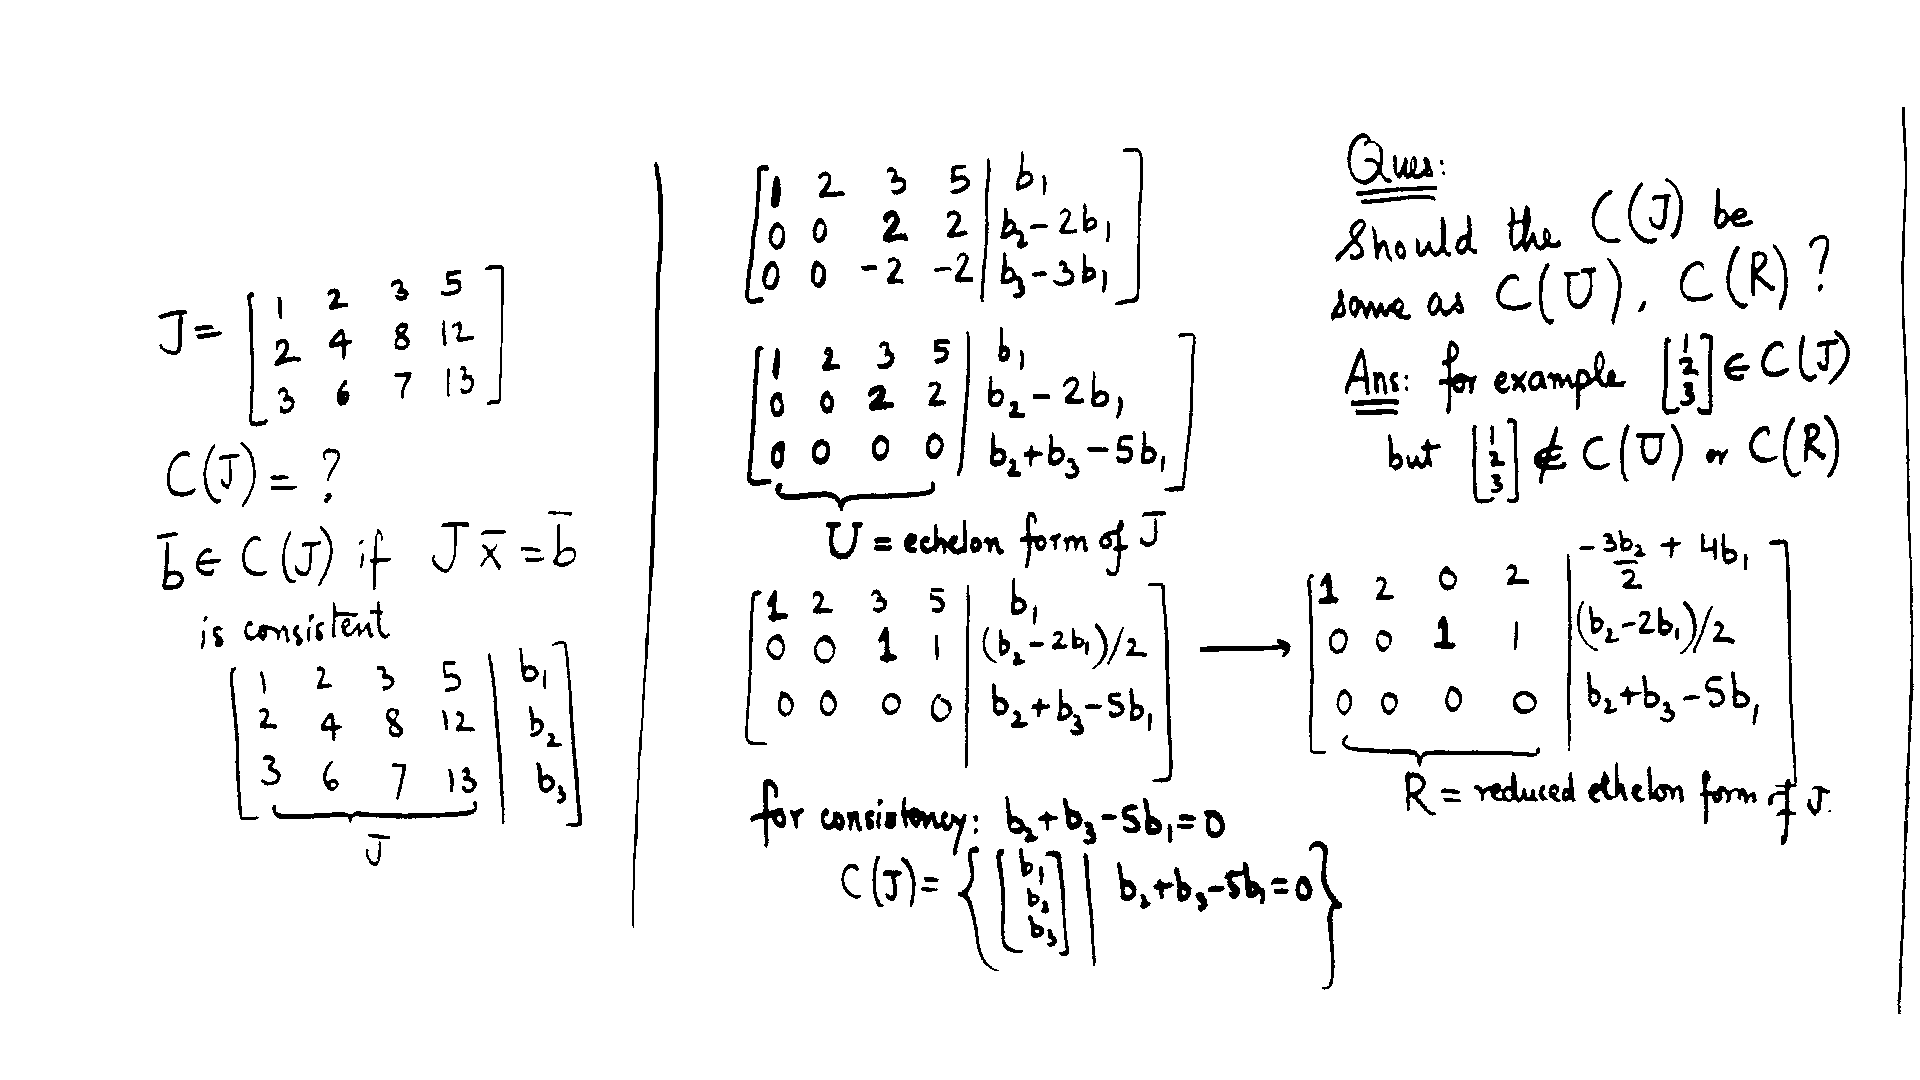 J = [ 1 2 3 5
2 4 8 12
3 6 7 13 ]
C(J) = ?
b̄ ∈ C(J) if J x̄ = b̄
is consistent
[ 1 2 3 5 | b₁
2 4 8 12 | b₂
3 6 7 13 | b₃ ]
J
[ 1 2 3 5 | b₁
0 0 2 2 | b₂-2b₁
0 0 -2 -2 | b₃-3b₁ ]
[ 1 2 3 5 | b₁
0 0 2 2 | b₂-2b₁
0 0 0 0 | b₂+b₃-5b₁ ]
U = echelon form of J
[ 1 2 3 5 | b₁
0 0 1 1 | (b₂-2b₁)/2
0 0 0 0 | b₂+b₃-5b₁ ]
→
[ 1 2 0 2 | -3b₂/2 + 4b₁
0 0 1 1 | (b₂-2b₁)/2
0 0 0 0 | b₂+b₃-5b₁ ]
R = reduced ethelon form of J.
for consistency: b₂+b₃-5b₁=0
C(J) = { [ b₁ b₂ b₃ ] | b₂+b₃-5b₁=0 }
Ques:
Should the C(J) be
same as C(U), C(R)?
Ans: for example [ 1 2 3 ] ∈ C(J)
but [ 1 2 3 ] ∉ C(U) or C(R)